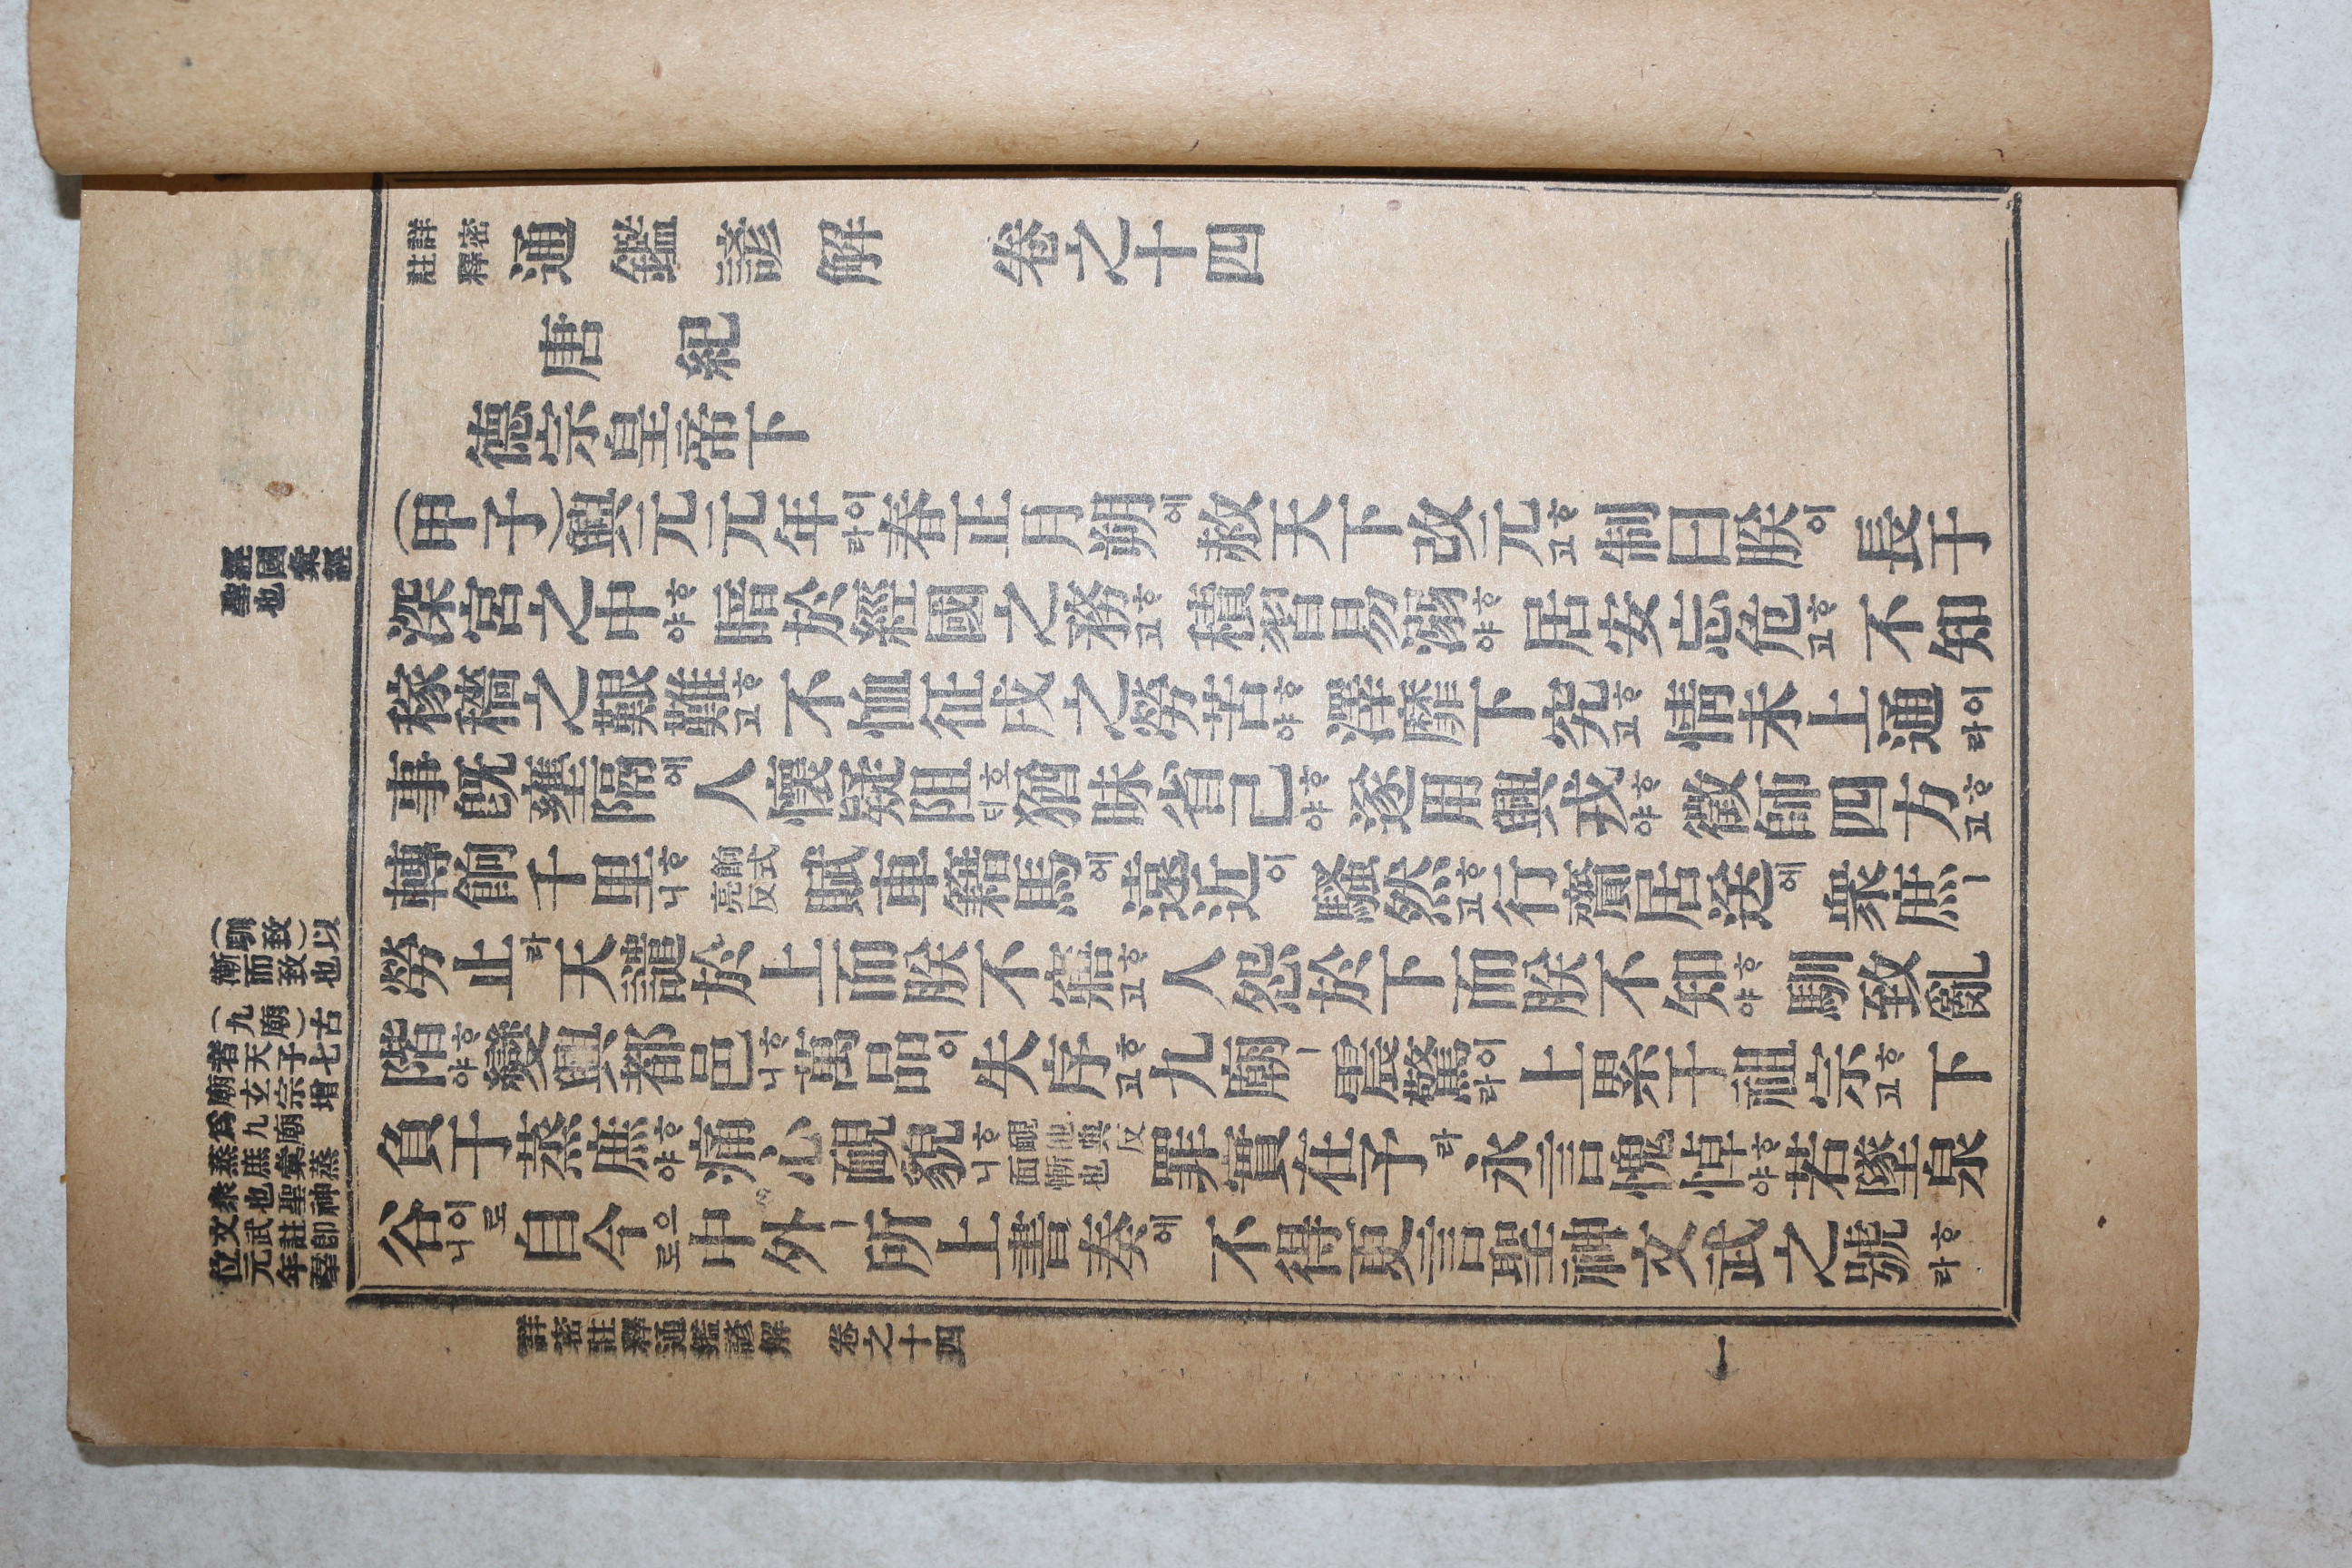 詳密註釋 通鑑諺解 卷之十四
唐紀
德宗皇帝下
(甲子)興元元年이라春正月朔에赦天下改元ᄒᆞ고制曰朕이長于
深宮之中ᄒᆞ야暗於經國之務ᄒᆞ고積習易溺ᄒᆞ야居安忘危ᄒᆞ고不知
稼穡之艱難ᄒᆞ고不恤征戍之勞苦ᄒᆞ야澤靡下究ᄒᆞ고情未上通이라
事旣壅隔에人懷疑阻호ᄃᆡ猶昧省己ᄒᆞ야遂用興戎ᄒᆞ야徵師四方ᄒᆞ고
轉餉千里ᄒᆞ니餉式亮反賦車籍馬에遠近이騷然ᄒᆞ고行齎居送에衆庶ㅣ
勞止라天譴於上而朕不寤ᄒᆞ고人怨於下而朕不知ᄒᆞ야馴致亂
階ᄒᆞ야變興都邑ᄒᆞ니萬品이失序ᄒᆞ고九廟ㅣ震驚이라上累于祖宗ᄒᆞ고下
負于蒸庶ᄒᆞ야痛心靦貌ᄒᆞ니靦他典反面慚也罪實在予라永言愧悼ᄒᆞ야若墜泉
谷이로니自今으로中外ㅣ所上書奏에不得更言聖神文武之號ᄒᆞ라
經國彙經
聖也
(馴致)以
漸而致也
(九廟)古
者天子七
廟玄宗增
爲九廟
蒸庶彙蒸
衆也聖神
文武註卽
位元年羣
詳密註釋通鑑諺解 卷之十四 一